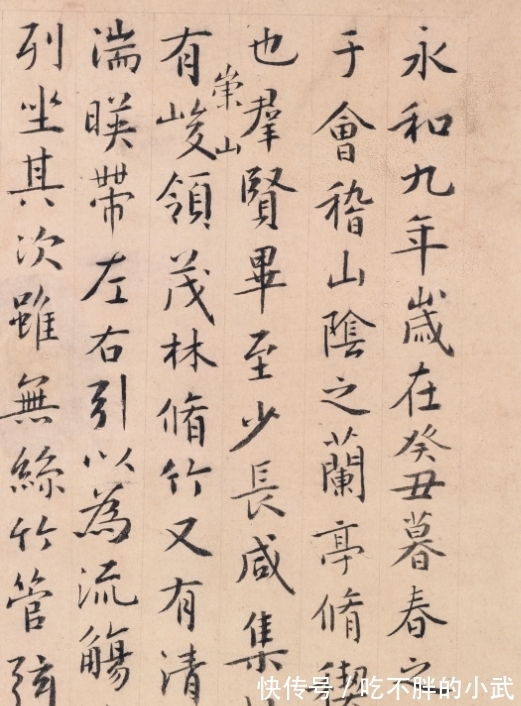 永和九年歲在癸丑暮春之
于會稽山陰之蘭亭脩稧
也羣賢畢至少長咸集
有崇山峻領茂林脩竹又有清
湍暎帶左右引以為流觴
列坐其次雖無絲竹管弦
快传号/吃不胖的小武